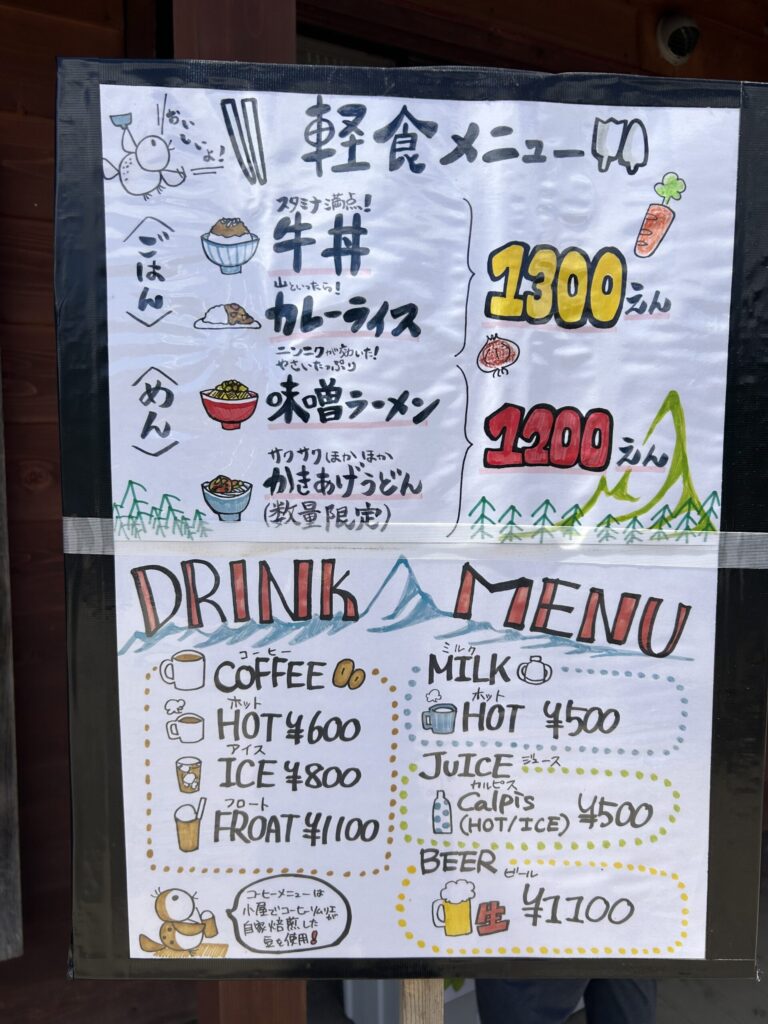 おいしいよ!
軽食メニュー
〈ごはん〉
スタミナ満点!
牛丼
山といったら!
カレーライス
1300えん
〈めん〉
ニンニクが効いた!
やさいたっぷり
味噌ラーメン
サクサクほかほか
かきあげうどん
(数量限定)
1200えん
DRINK MENU
コーヒー
COFFEE
ホット
HOT ¥600
アイス
ICE ¥800
フロート
FROAT ¥1100
ミルク
MILK
ホット
HOT ¥500
JUICE ジュース
カルピス
Calpis
(HOT/ICE) ¥500
BEER ビール
生 ¥1100
コーヒーメニューは
小屋でコーヒーソムリエが
自家焙煎した
豆を使用!